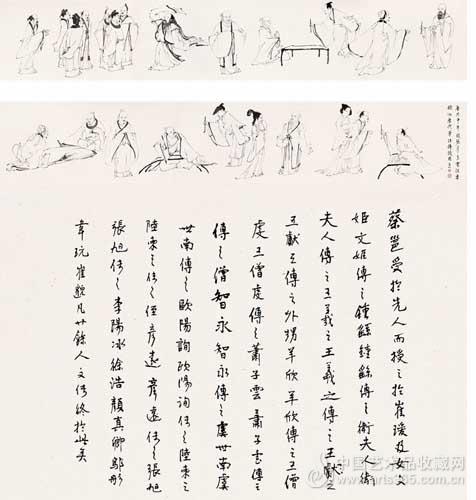 蔡邕受於先人而授之於崔瑗及女文
姬文姬傳之鍾繇鍾繇傳之衛夫人衛
夫人傳之王羲之王羲之傳之王獻之
王獻之傳之外甥羊欣羊欣傳之王僧
虔王僧虔傳之蕭子雲蕭子雲傳之
傳之僧智永智永傳之虞世南虞
世南傳之歐陽詢歐陽詢傳之陸柬之
陸柬之傳之侄彥遠彥遠傳之張旭
張旭傳之李陽冰徐浩顏真卿鄔彤
韋玩崔邈凡廿餘人文傳終於此矣
中国艺术品收藏网